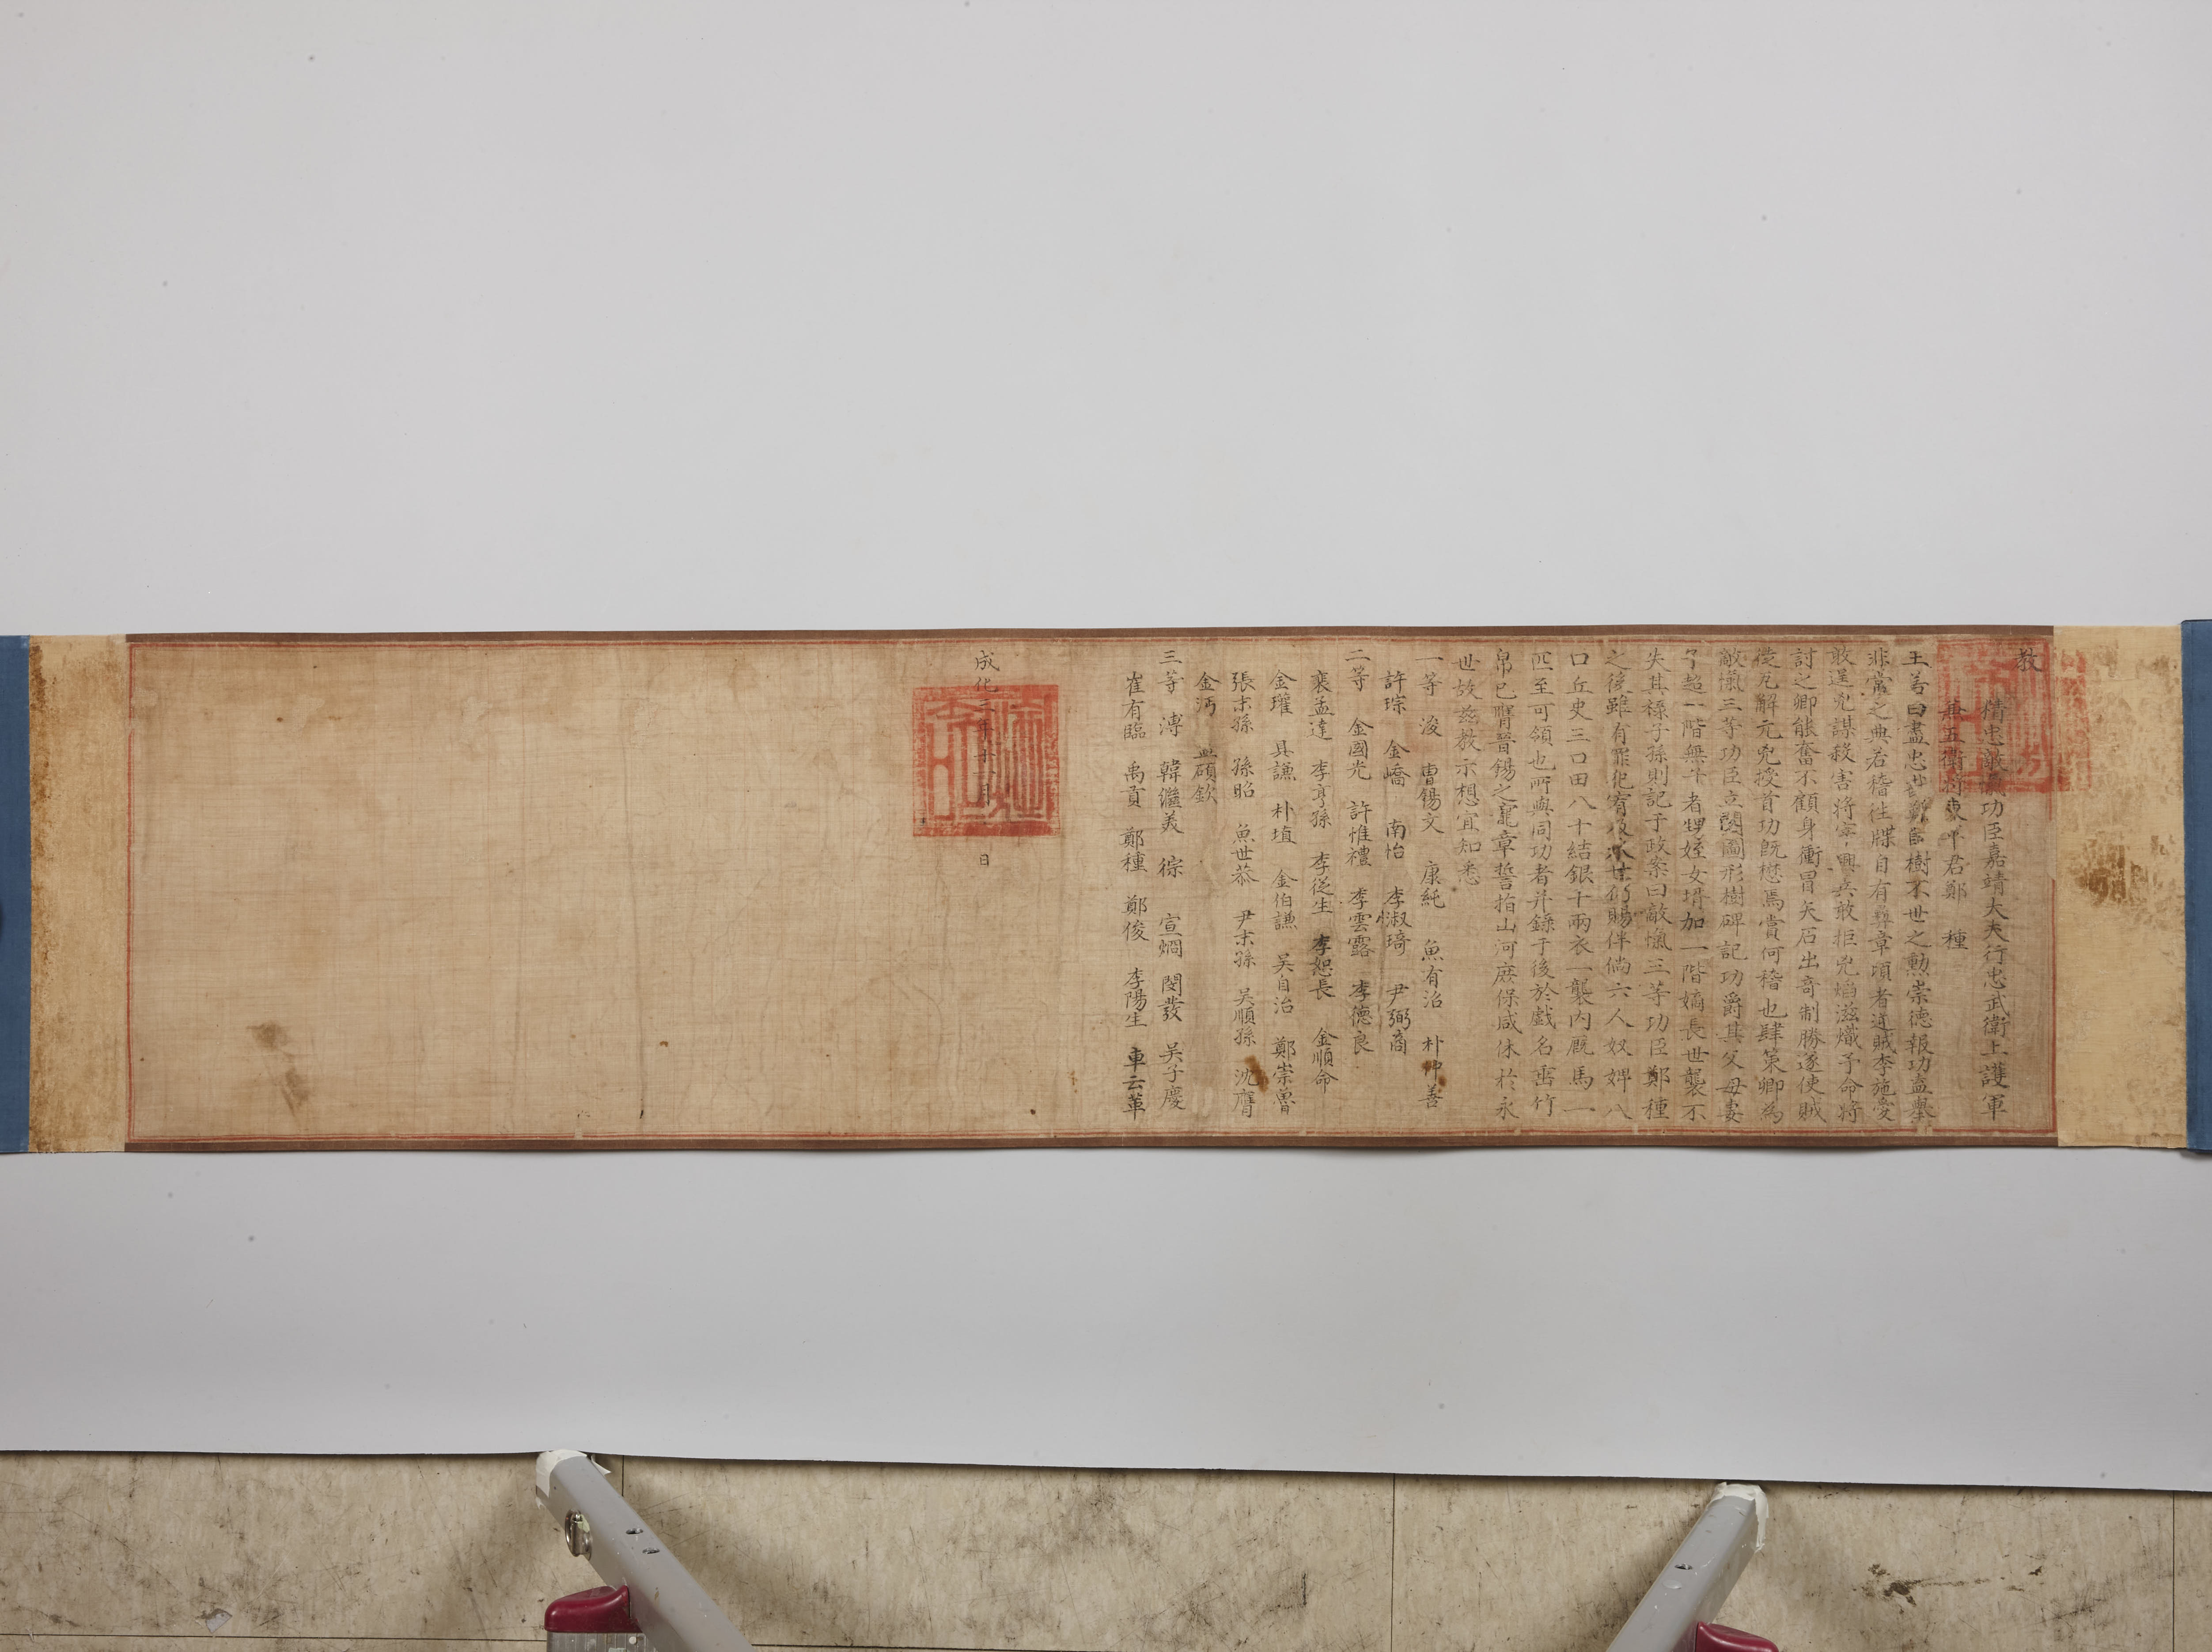 教
精忠敵愾功臣嘉靖大夫行忠武衛上護軍
兼五衛將東平君鄭　種
王若曰盡忠 臣樹不世之勲崇德報功盍舉
非常之典若稽往牒自有彝章頃者逆賊李施愛
敢逞兇謀殺害將 興兵敢拒兇焰滋熾予命將
討之卿能奮不顧身衝冒矢石出奇制勝遂使賊
徒瓦解元兇授首功旣懋焉賞何稽也肆策卿爲
敵愾三等功臣立閣圖形樹碑記功爵其父母妻
子超一階無子者甥姪女壻加一階嫡長世襲不
失其祿子孫則記于政案曰敵愾三等功臣鄭種
之後雖有罪犯宥及永世仍賜伴倘六人奴婢八
口丘史三口田八十結銀十兩衣一襲內廐馬一
匹至可領也所與同功者并錄于後於戲名垂竹
帛已膺晉錫之寵章誓指山河庶保咸休於永
世故玆敎示想宜知悉
一等　浚　曹錫文　康純　魚有沼　朴仲善
許琮　金嶠　南怡　李淑琦　尹弼商
二等　金國光　許惟禮　李雲露　李德良
裵孟達　李亨孫　李從生　李恕長　金順命
金瓘　具謙　朴埴　金伯謙　吳自治　鄭崇魯
張末孫　孫昭　魚世恭　尹末孫　吳順孫　沈膺
金沔　孟碩欽
三等　溥　韓繼美　徖　宣烱　閔發　吳子慶
崔有臨　禹貢　鄭種　鄭俊　李陽生　車云革
成化三年十一月　日